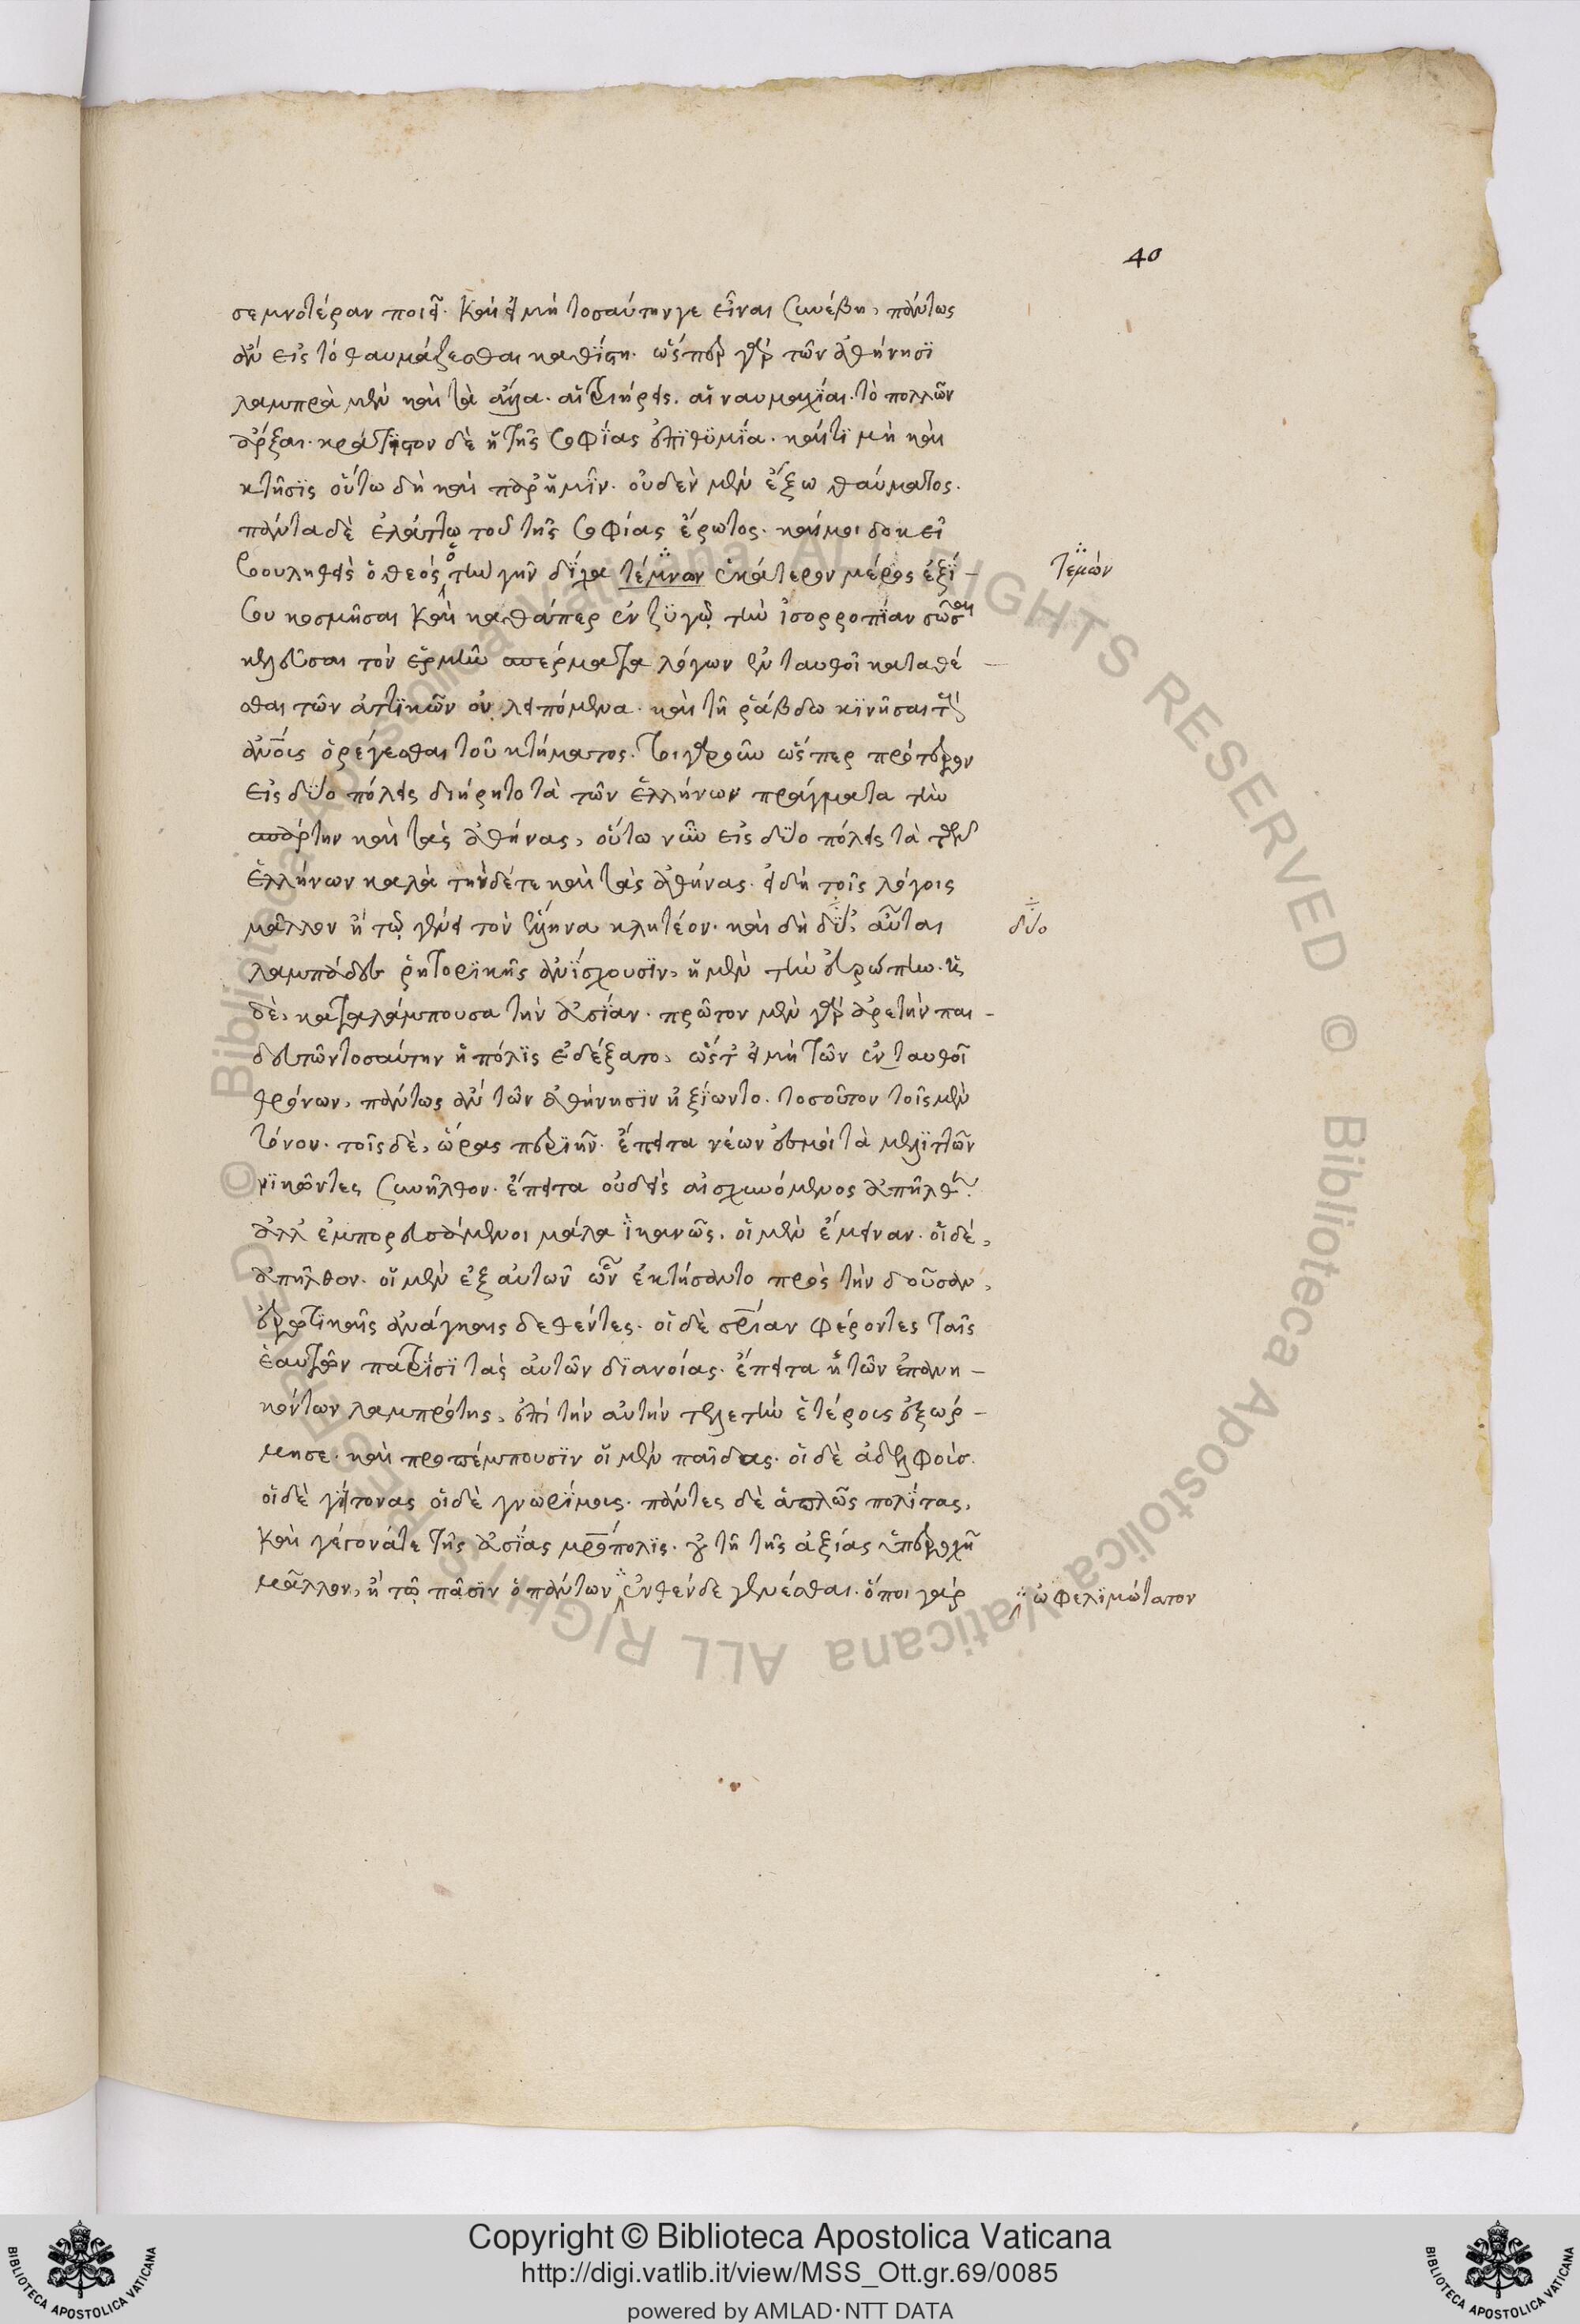 40
σεμνοτέραν ποιεῖ. καὶ εἰ μὴ τοσαύτην γε εἶναι συνέβη, πάντως
ἂν εἰς τὸ θαυμάζεσθαι καθίστη. ὥσπερ γὰρ τῶν ἀθήνησϊ
λαμπρὰ μὲν καὶ τὰ ἄλλα. αἱ τριήρεις. αἱ ναυμαχίαι. τὸ πολλῶν
ἄρξαι. κράτιστον δὲ ἡ τῆς σοφίας ἐπϊθϋμία. καίτϊ μὴ καὶ
κτῆσϊς οὕτω δὴ καὶ παρ' ἡμῖν. οὐδὲν μὲν ἔξω θαύματος.
πάντα δὲ ἐλάττω τοῦ τῆς σοφίας ἔρωτος. καί μοι δοκεῖ
βουληθεὶς ὁ θεὸς τὴν γῆν δίχα τέμνων ἑκάτερον μέρος ἐξί-
τεμών
σου κοσμῆσαι καὶ καθάπερ ἐν ζϋγῷ τὴν ἰσορροπίαν σῶσαι
κελεῦσαι τὸν ἑρμῆν σπέρματα λόγων ἐνταυθοῖ καταθέ-
σθαι τῶν ἀττϊκῶν οὐ λειπόμενα. καὶ τῇ ῥάβδω κϊνῆσαι τοὺς
ἀνους ὀρέγεσθαι τοῦ κτήματος. τοιγαροῦν ὥσπερ πρότερον
εἰς δύο πόλεις διήρητο τὰ τῶν ἑλλήνων πράγματα τὴν
σπάρτην καὶ τὰς ἀθήνας, οὕτω νῦν εἰς δύο πόλεις τὰ τῶν
ἑλλήνων καλὰ τήνδέ τε καὶ τὰς ἀθήνας. εἰ δὴ τοῖς λόγοις
μᾶλλον ἢ τῷ γένει τὸν ἕλληνα κλητέον. καὶ δὴ δύ' αὗται
δύο
λαμπάδες ῥητορϊκῆς ἀνΐσχουσϊν, ἡ μὲν τὴν εὐρώπην. ἡ
δὲ, καταλάμπουσα τὴν ἀσΐαν. πρῶτον μὲν γὰρ ἀρετὴν παι-
δευτῶν τοσαύτην ἡ πόλϊς ἐδέξατο, ὥστ' εἰ μὴ τῶν ἐνταυθοῖ
θρόνων, πάντως ἂν τῶν ἀθήνησϊν ἠξίωντο. τοσοῦτον τοῖς μὲν
τόνου. τοῖς δὲ, ὥρας περϊῆν. ἔπειτα νέων ἑσμοὶ τὰ μελϊττῶν
νϊκῶντες συνῆλθον. ἔπειτα οὐδεὶς αἰσχυνόμενος ἀπῆλθεν.
ἀλλ' ἐμπορευσάμενοι μάλα ἱκανῶς. οἱ μὲν ἔμειναν. οἱ δὲ,
ἀπῆλθον. οἱ μὲν ἐξ αὐτῶν ὧν ἐκτήσαντο πρὸς τὴν δοῦσαν,
ἐρωτϊκαῖς ἀνάγκαις δεθέντες. οἱ δὲ σρίαν φέροντες ταῖς
ἑαυτῶν πατρίσϊ τὰς αὐτῶν διανοίας. ἔπειτα ἡ τῶν ἐπανη-
κόντων λαμπρότης, ἐπὶ τὴν αὐτὴν τελετὴν ἑτέρους ἐξώρ-
μησε. καὶ προπέμπουσϊν οἱ μὲν παῖδας. οἱ δὲ ἀδελφούς.
οἱ δὲ γείτονας οἱ δὲ γνωρίμους. πάντες δὲ ἁπλῶς πολίτας.
καὶ γέγονάτε τῆς ἀσΐας μρόπολϊς. οὐ τῇ τῆς ἀξίας ὑπεροχῇ
μᾶλλον, ἢ τῷ πᾶσϊν ὁπάντων ἐνθένδε γενέσθαι. ὅποι γὰρ
ὠφελϊμώτατον
Copyright © Biblioteca Apostolica Vaticana
http://digi.vatlib.it/view/MSS_Ott.gr.69/0085
powered by AMLAD·NTT DATA